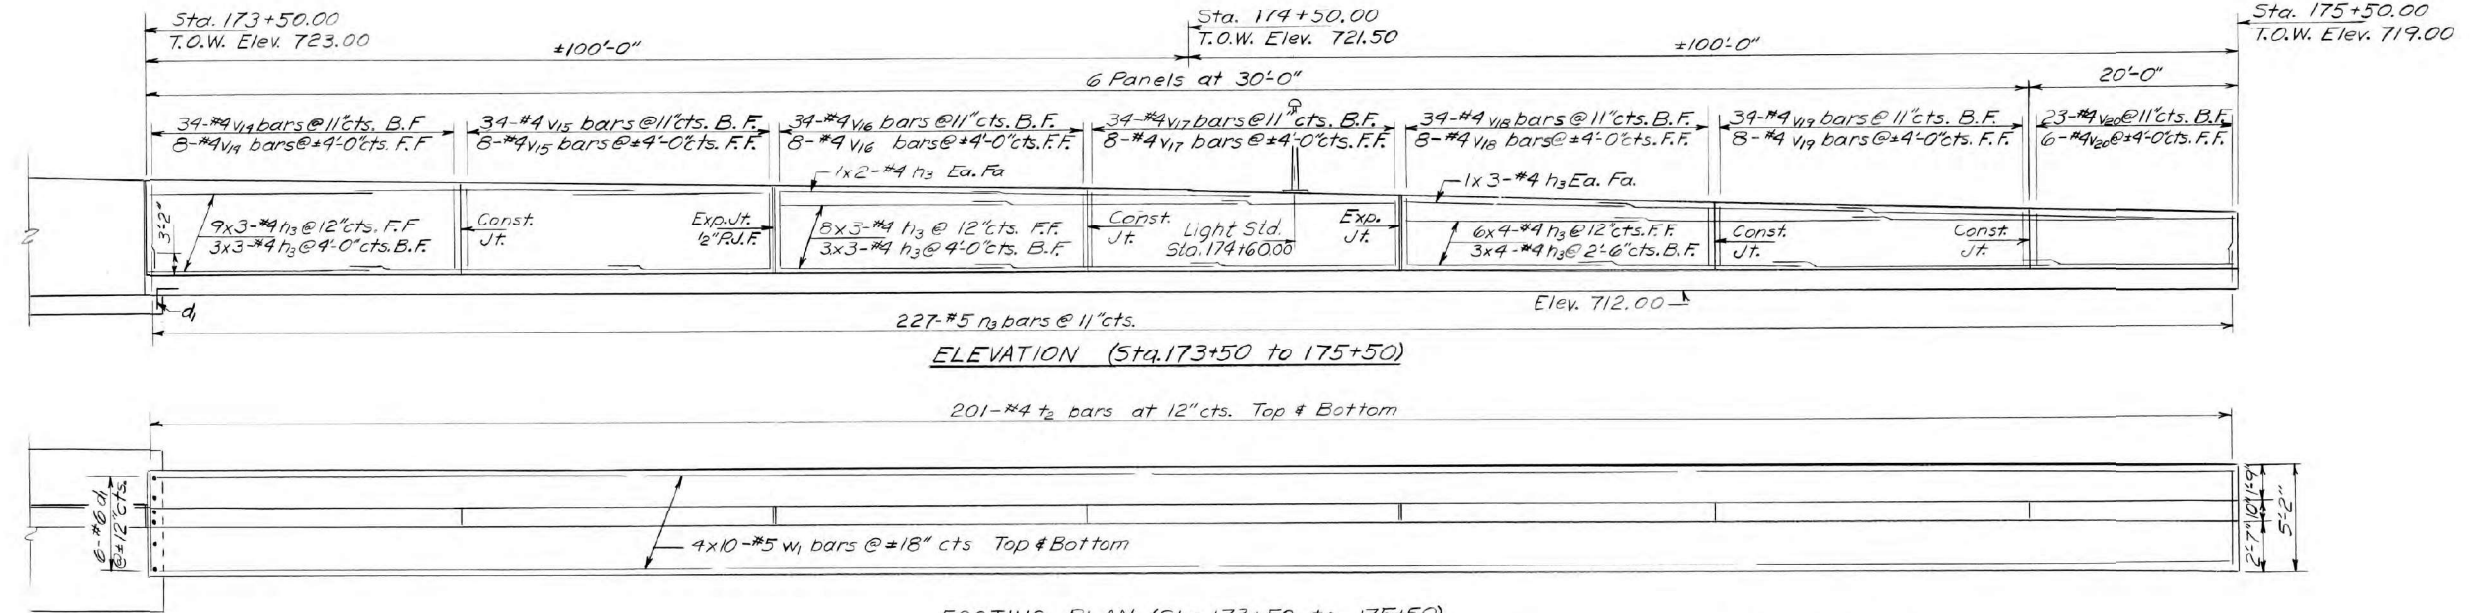 Sta. 173+50.00
T.O.W. Elev. 723.00
±100'-0"
Sta. 174+50.00
T.O.W. Elev. 721.50
±100'-0"
Sta. 175+50.00
T.O.W. Elev. 719.00
6 Panels at 30'-0"
20'-0"
34-#4 v14 bars @ 11" cts. B.F
8-#4 v14 bars @ ±4'-0" cts. F.F
34-#4 v15 bars @ 11" cts. B.F.
8-#4 v15 bars @ ±4'-0" cts. F.F.
34-#4 v16 bars @ 11" cts. B.F.
8-#4 v16 bars @ ±4'-0" cts. F.F.
34-#4 v17 bars @ 11" cts. B.F.
8-#4 v17 bars @ ±4'-0" cts. F.F.
34-#4 v18 bars @ 11" cts. B.F.
8-#4 v18 bars @ ±4'-0" cts. F.F.
34-#4 v19 bars @ 11" cts. B.F.
8-#4 v19 bars @ ±4'-0" cts. F.F.
23-#4 v20 @ 11" cts. B.F.
6-#4 v20 @ ±4'-0" cts. F.F.
1x2-#4 h3 Ea. Fa
1x3-#4 h3 Ea. Fa.
3'-2"
9x3-#4 h3 @ 12" cts. F.F
3x3-#4 h3 @ 4'-0" cts. B.F.
Const.
Jt.
Exp. Jt.
½" P.J.F.
8x3-#4 h3 @ 12" cts. F.F.
3x3-#4 h3 @ 4'-0" cts. B.F.
Const.
Jt.
Light Std.
Sta. 174+60.00
Exp.
Jt.
6x4-#4 h3 @ 12" cts. F.F.
3x4-#4 h3 @ 2'-6" cts. B.F.
Const.
Jt.
Const.
Jt.
d1
Elev. 712.00
227-#5 n3 bars @ 11" cts.
ELEVATION (Sta. 173+50 to 175+50)
201-#4 t2 bars at 12" cts. Top & Bottom
6-#6 d1
@ ±12" cts.
4x10-#5 w1 bars @ ±18" cts Top & Bottom
1'-9"
10"
2'-7"
5'-2"
FOOTING PLAN (Sta. 173+50 to 175+50)